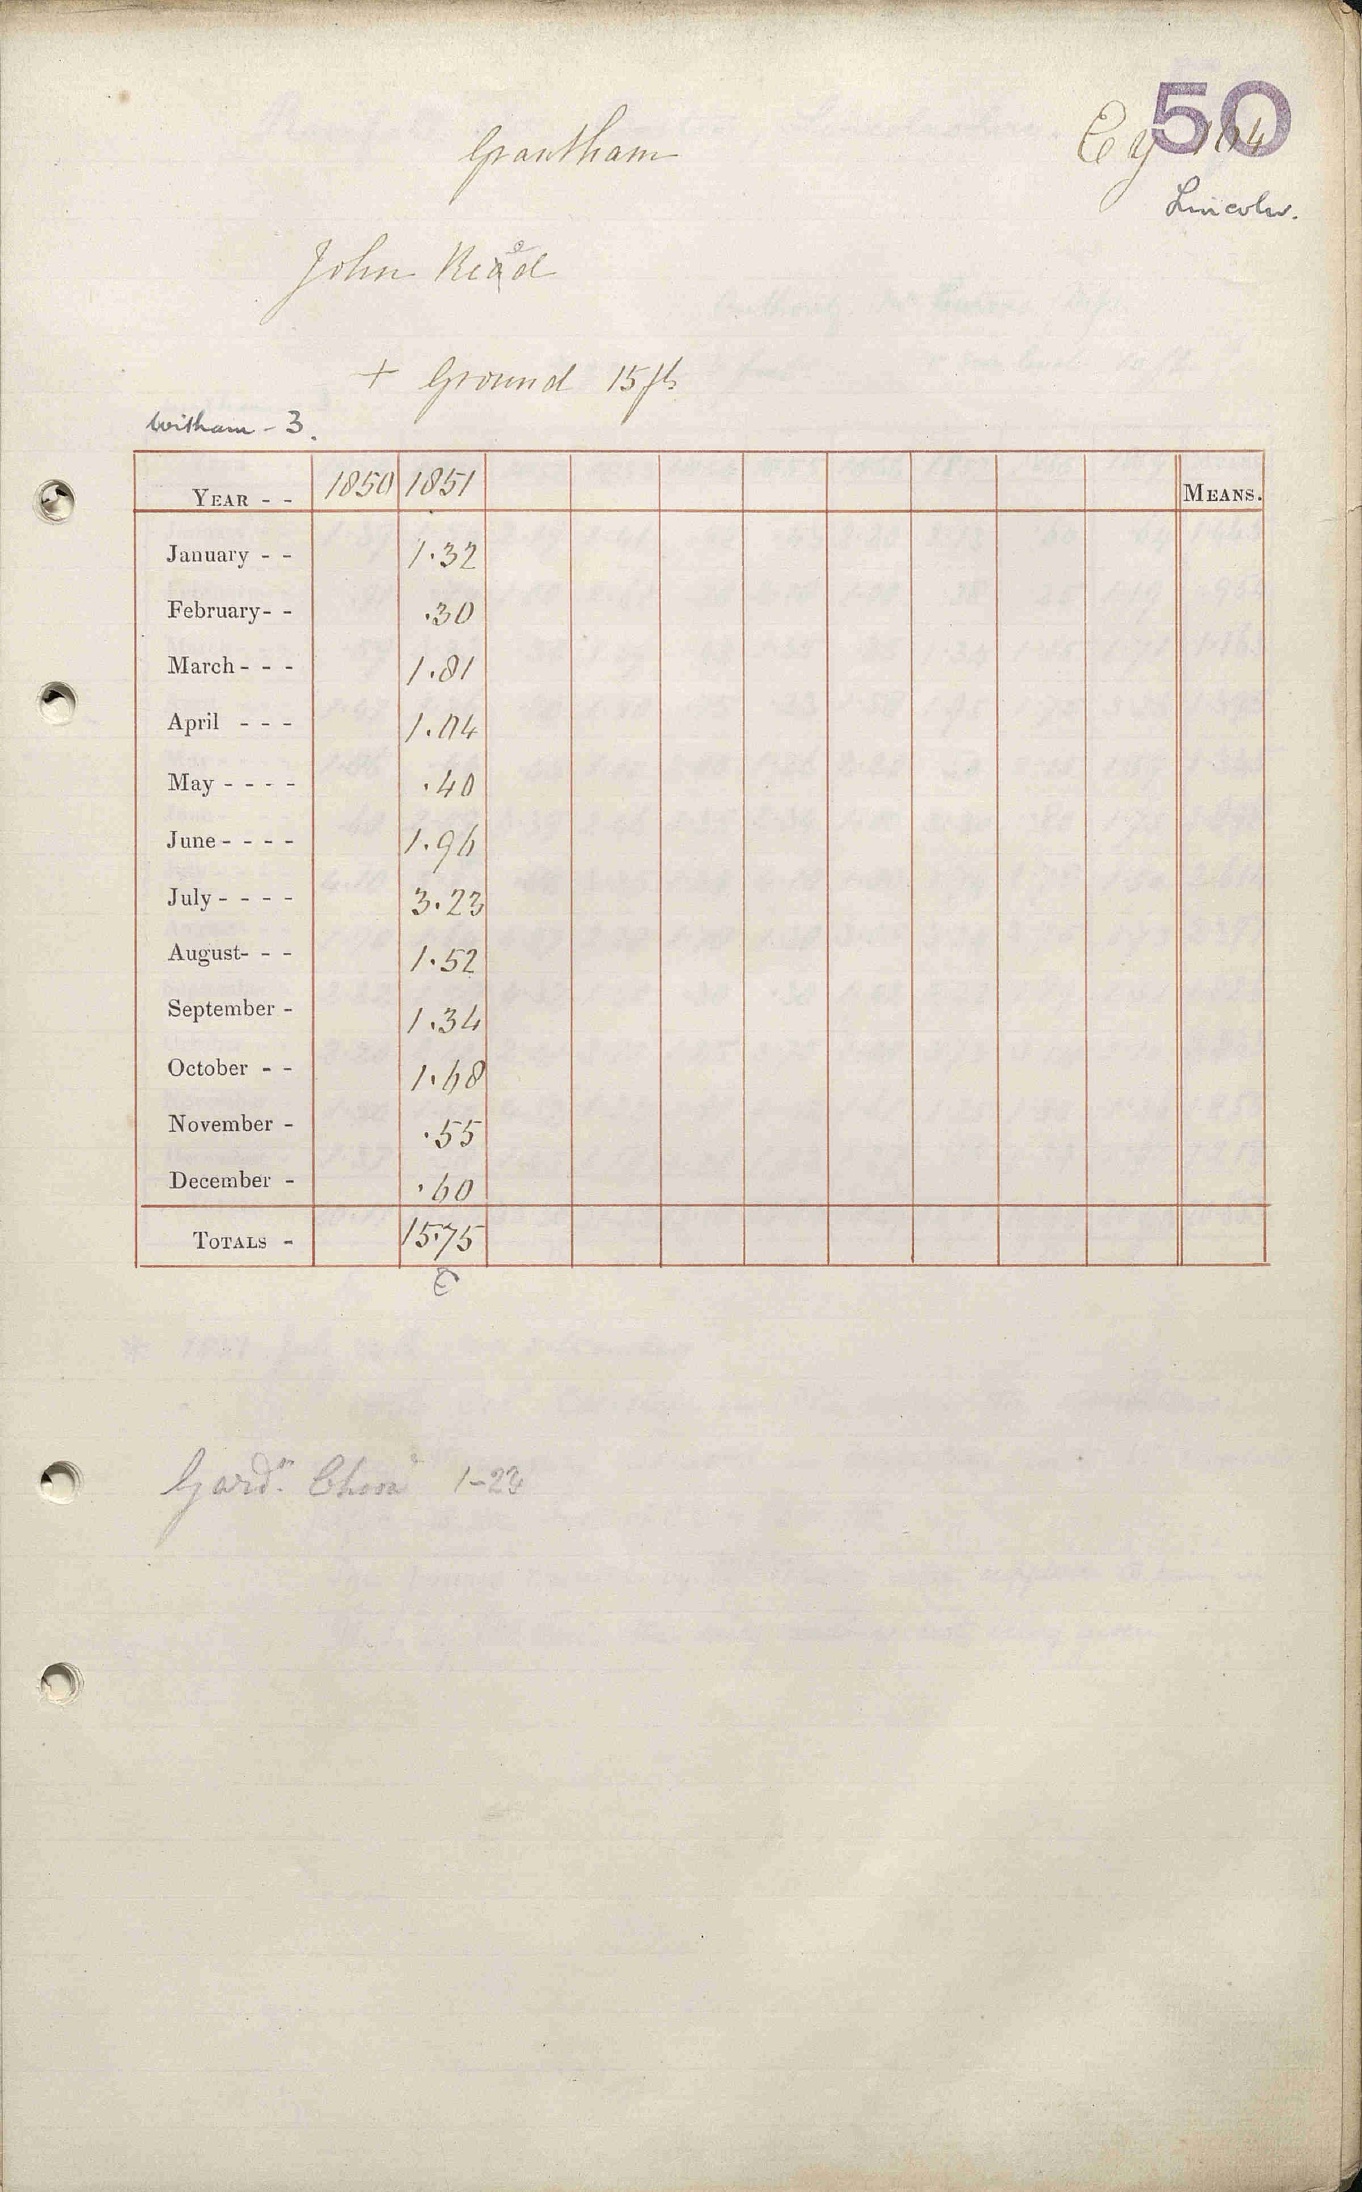 50
Grantham
Lincoln.
John Reed
+ Ground 15 ft
Witham - 3.
YEAR - - 1850 1851 MEANS.
January - - 1.32
February- - .30
March- - - 1.81
April - - - 1.04
May - - - - .40
June- - - - 1.96
July- - - - 3.23
August- - - 1.52
September - 1.34
October - - 1.68
November - .55
December - .60
TOTALS - 15.75
Gard.n 1-24